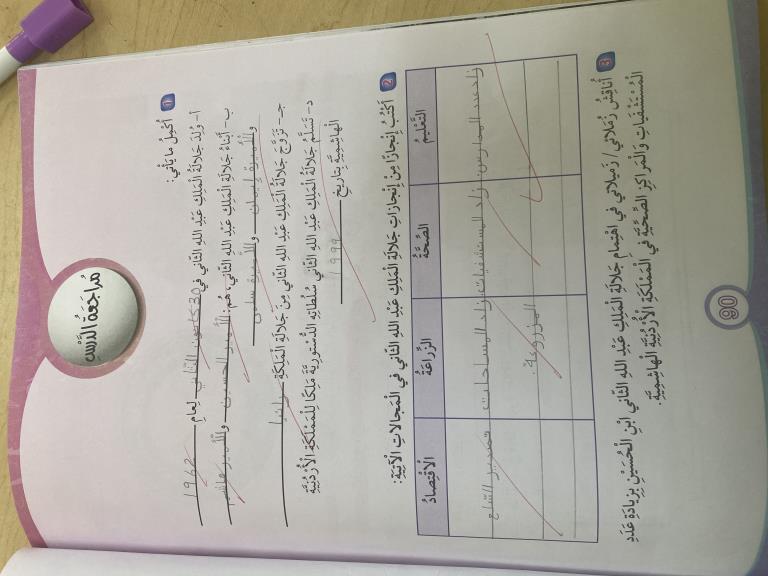 مُراجَعَةُ الدَّرْسِ
1 أُكْمِلُ ما يَأْتي:
أ- وُلِدَ جَلالَةُ المَلِكِ عَبْدِ اللهِ الثّاني في 30 كانون الثاني لِعامِ 1962
ب- أَبْناءُ جَلالَةِ المَلِكِ عَبْدِ اللهِ الثّاني، هُم: الأمير الحسين والأمير هاشم
والأميرة إيمان والأميرة سلمى
جـ- تَزَوَّجَ جَلالَةُ المَلِكِ عَبْدِ اللهِ الثّاني مِنْ جَلالَةِ المَلِكَةِ رانيا
د- تَسَلَّمَ جَلالَةُ المَلِكِ عَبْدِ اللهِ الثّاني سُلُطاتِهِ الدُّسْتورِيَّةَ مَلِكًا لِلْمَمْلَكَةِ الْأُرْدُنِيَّةِ
الْهاشِمِيَّةِ بِتاريخِ 1999
2 أَكْتُبُ إِنْجازًا مِنْ إِنْجازاتِ جَلالَةِ المَلِكِ عَبْدِ اللهِ الثّاني في الْمَجالاتِ الْآتِيَةِ:
التَّعْليمُ الصِّحَّةُ الزِّراعَةُ الْاِقْتِصادُ
زاد عدد المدارس زاد المستشفيات زاد المساحات السلع
المزروعة.
3 أُناقِشُ زُمَلائي/ زَميلاتي في اهْتِمامِ جَلالَةِ المَلِكِ عَبْدِ اللهِ الثّاني ابْنِ الْحُسَيْنِ بِزِيادَةِ عَدَدِ
الْمُسْتَشْفَياتِ وَالْمَراكِزِ الصِّحِّيَّةِ في الْمَمْلَكَةِ الْأُرْدُنِيَّةِ الْهاشِمِيَّةِ.
90